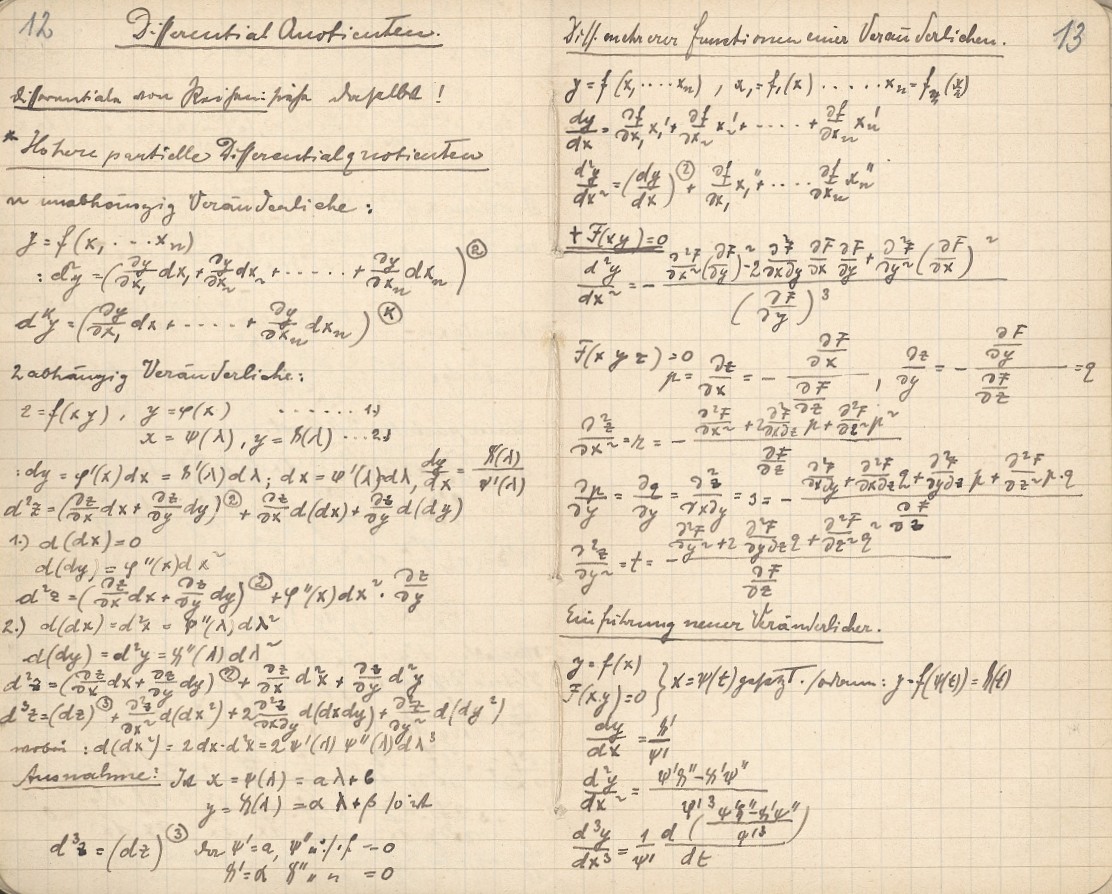 12
Differential Quotienten.
Differentiale von Reihen: siehe daselbst!
* Höhere partielle Differentialquotienten
n unabhängig Veränderliche:
y = f(x₁ · · · xₙ)
: d²y = (∂y/∂x₁ dx₁ + ∂y/∂x₂ dx₂ + · · · · · · + ∂y/∂xₙ dxₙ)^②
dᴷy = (∂y/∂x₁ dx + · · · · · + ∂y/∂xₙ dxₙ)^Ⓚ
2 abhängig Veränderliche:
z = f(xy), y = φ(x) · · · · · · · 1.)
x = ψ(λ), y = ϑ(λ) · · · 2.)
: dy = φ'(x)dx = ϑ'(λ)dλ; dx = ψ'(λ)dλ, dy/dx = ϑ'(λ)/ψ'(λ)
d²z = (∂z/∂x dx + ∂z/∂y dy)^② + ∂z/∂x d(dx) + ∂z/∂y d(dy)
1.) d(dx) = 0
d(dy) = φ''(x)dx²
d²z = (∂z/∂x dx + ∂z/∂y dy)^② + φ''(x)dx² · ∂z/∂y
2.) d(dx) = d²x = ψ''(λ)dλ²
d(dy) = d²y = ϑ''(λ)dλ²
d²z = (∂z/∂x dx + ∂z/∂y dy)^② + ∂z/∂x d²x + ∂z/∂y d²y
d³z = (dz)^③ + ∂²z/∂x² d(dx²) + 2 ∂²z/∂x∂y d(dxdy) + ∂²z/∂y² d(dy²)
wobei : d(dx²) = 2dx·d²x = 2ψ'(λ) ψ''(λ)dλ³
Ausnahme: Ist x = ψ(λ) = aλ + b
y = ϑ(λ) = αλ + β so ist
d³z = (dz)^③ da ψ' = a, ψ'' u.s.f. = 0
ϑ' = α ϑ'' „ „ = 0
Diff. mehrerer Functionen einer Veränderlichen. 13
y = f(x₁ · · · · xₙ), x₁ = f₁(x) · · · · · xₙ = fₙ(x)
dy/dx = ∂f/∂x₁ x₁' + ∂f/∂x₂ x₂' + · · · · + ∂f/∂xₙ xₙ'
d²y/dx² = (dy/dx)^② + ∂f/∂x₁ x₁'' + · · · · ∂f/∂xₙ xₙ''
+ F(xy) = 0
d²y/dx² = − (∂²F/∂x² (∂F/∂y)² − 2 ∂²F/∂x∂y ∂F/∂x ∂F/∂y + ∂²F/∂y² (∂F/∂x)²) / (∂F/∂y)³
F(xyz) = 0
p = ∂z/∂x = − (∂F/∂x)/(∂F/∂z), ∂z/∂y = − (∂F/∂y)/(∂F/∂z) = q
∂²z/∂x² = r = − (∂²F/∂x² + 2 ∂²F/∂x∂z p + ∂²F/∂z² p²) / (∂F/∂z)
∂p/∂y = ∂q/∂y = ∂²z/∂x∂y = s = − (∂²F/∂x∂y + ∂²F/∂x∂z q + ∂²F/∂y∂z p + ∂²F/∂z² p·q) / (∂F/∂z)
∂²z/∂y² = t = − (∂²F/∂y² + 2 ∂²F/∂y∂z q + ∂²F/∂z² q²) / (∂F/∂z)
Einführung neuer Veränderlicher.
y = f(x)
F(x.y) = 0 } x = ψ(t) gesetzt. so dann: y = f(ψ(t)) = ϑ(t)
dy/dx = ϑ'/ψ'
d²y/dx² = (ψ'ϑ'' − ϑ'ψ'')/ψ'³
d³y/dx³ = 1/ψ' d((ψ'ϑ'' − ϑ'ψ'')/ψ'³)/dt